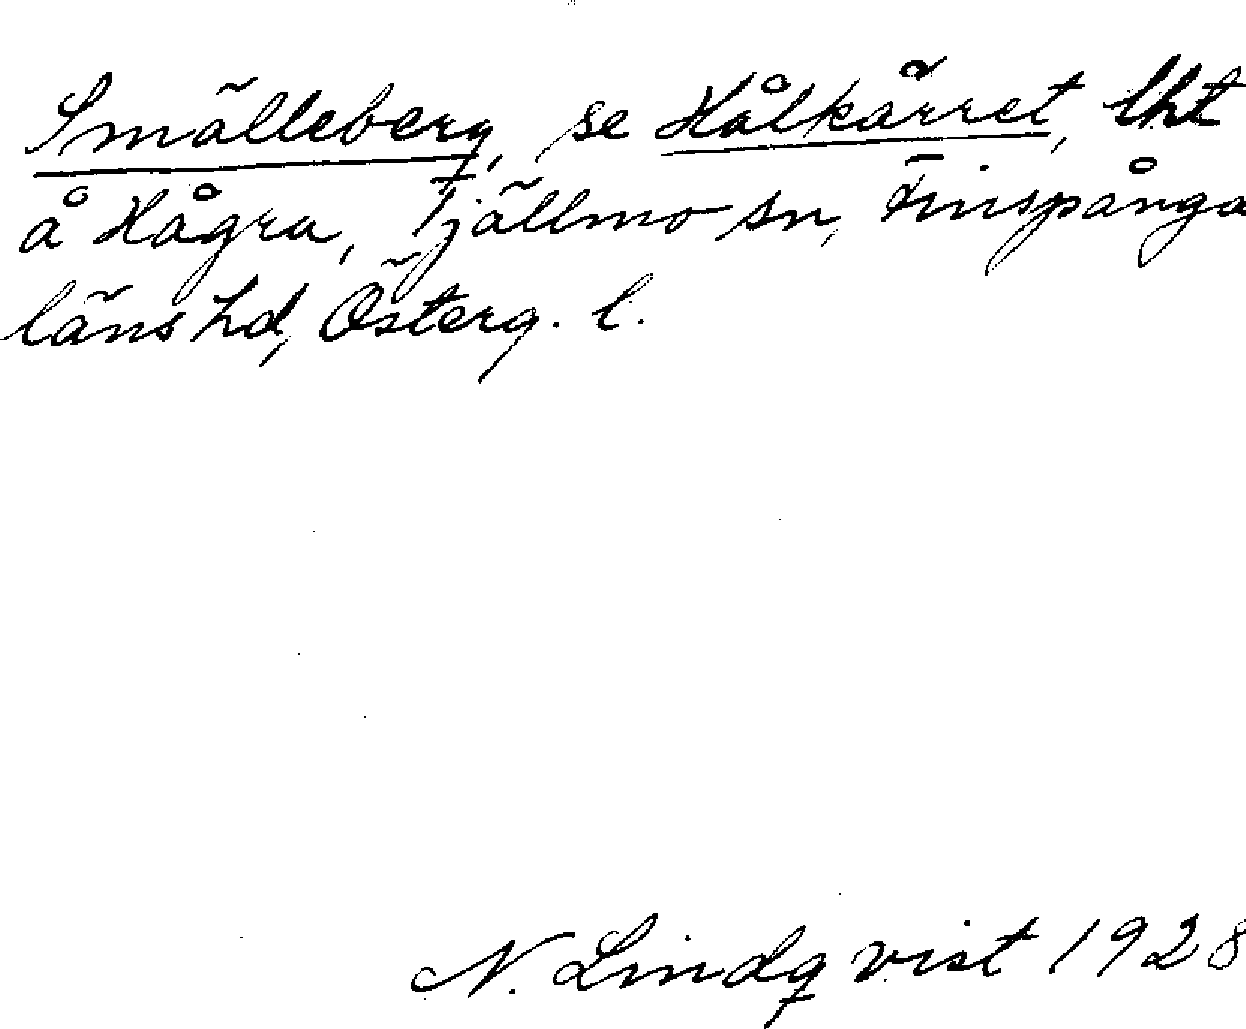 Smälleberg, se Hålkärret, lht
å Hågra, Tjällmo sn, Finspånga
läns hd, Österg. l.
N. Lindqvist 1928